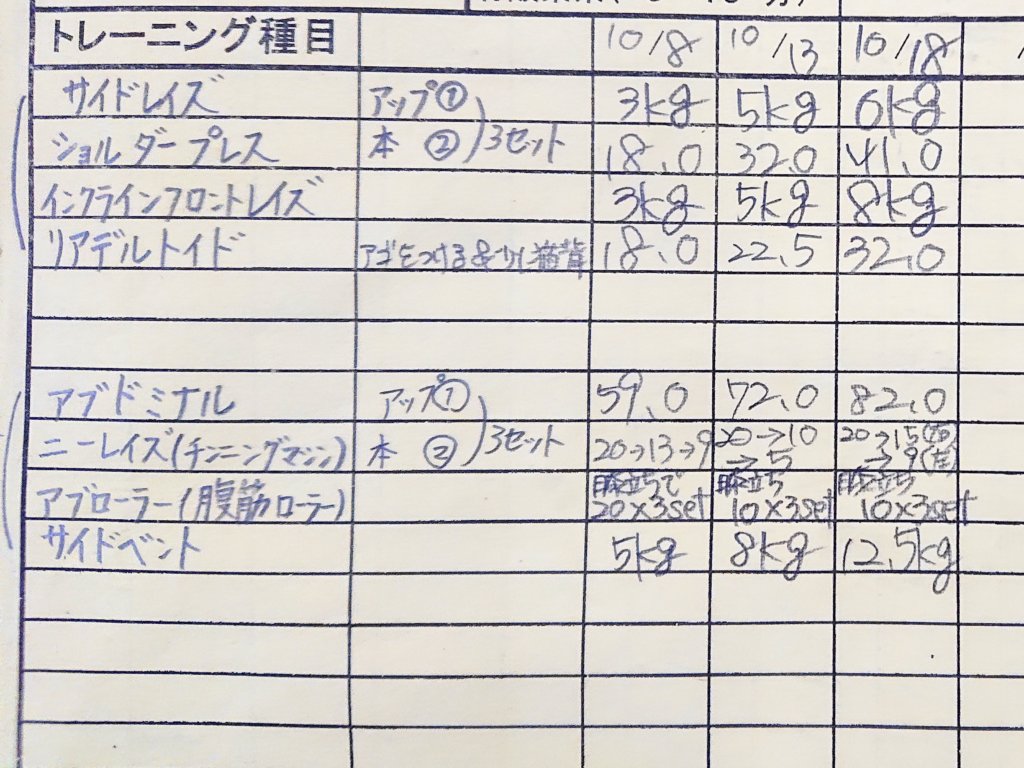 トレーニング種目 10/8 10/13 10/18
サイドレイズ アップ① 3kg 5kg 6kg
ショルダープレス 本 ② 3セット 18.0 32.0 41.0
インクラインフロントレイズ 3kg 5kg 8kg
リアデルトイド アゴをつける&少し猫背 18.0 22.5 32.0
アブドミナル アップ① 59.0 72.0 82.0
ニーレイズ(チンニングマシン) 本 ② 3セット 20→13→9 20→10 20→15
→5 →9
アブローラー(腹筋ローラー) 膝立ちで 膝立ち 膝立ち
20×3set 10×3set 10×3set
サイドベント 5kg 8kg 12.5kg